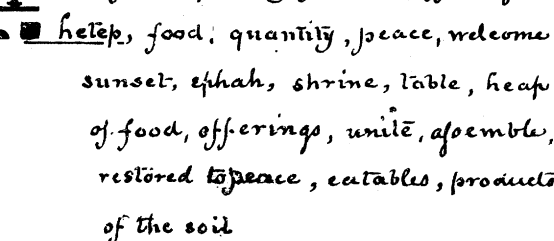 hetep, food, quantity, peace, welcome
sunset, ephah, shrine, table, heap
of food, offerings, unite, assemble,
restored to peace, eatables, products
of the soil